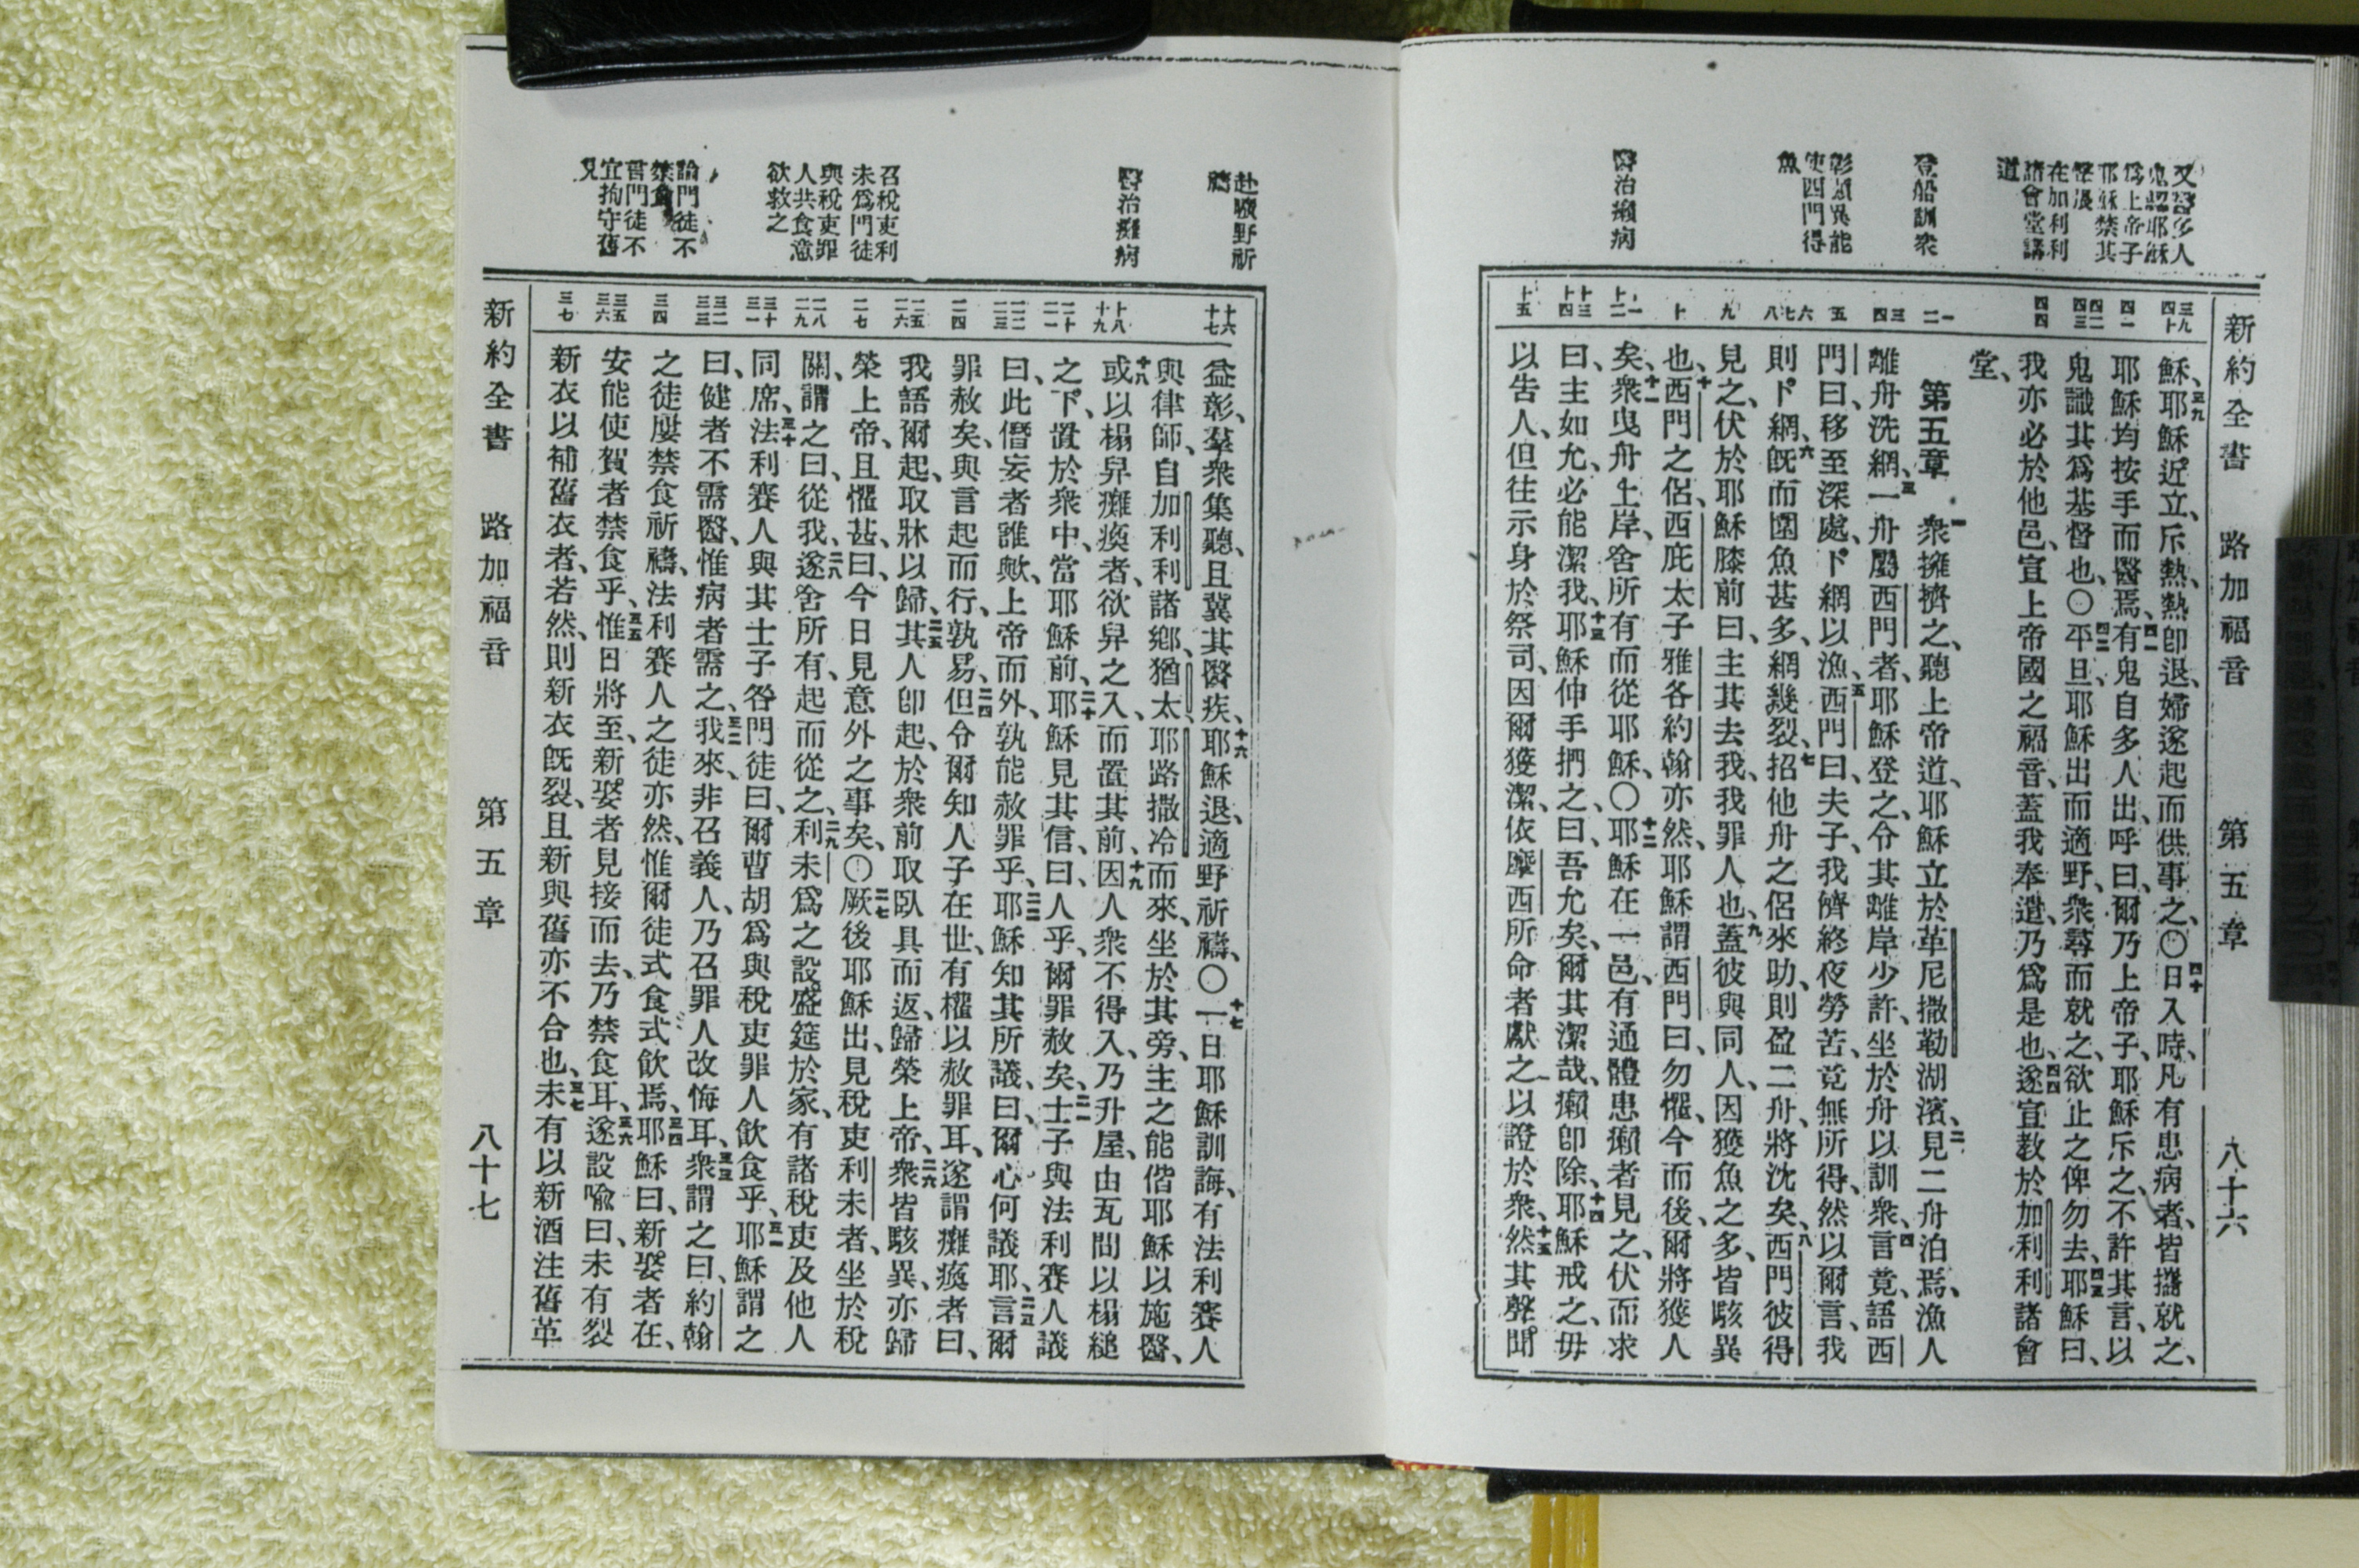 新約全書 路加福音 第五章 八十六
鬼認耶穌
爲上帝子
耶穌禁其
在加利利
諸會堂講
道
登船訓衆
彰顯異能
使西門得
魚
醫治癩病
三九
四十
四一
四二
四三
四四
一
二
三
四
五
六
七
八
九
十
十一
十二
十三
十四
十五
穌、三九耶穌近立、斥熱、熱卽退、婦遂起而供事之、〇四十日入時、凡有患病者、皆攜就之、
耶穌均按手而醫焉、四一有鬼自多人出、呼曰、爾乃上帝子、耶穌斥之、不許其言、以
鬼識其爲基督也、〇四二平旦、耶穌出而適野、衆尋而就之、欲止之俾勿去、四三耶穌曰、
我亦必於他邑、宣上帝國之福音、蓋我奉遣、乃爲是也、四四遂宣教於加利利諸會
堂、
第五章 一衆擁擠之、聽上帝道、耶穌立於革尼撒勒湖濱、二見二舟泊焉、漁人
離舟洗網、三一舟屬西門者、耶穌登之、令其離岸少許、坐於舟以訓衆、四言竟、語西
門曰、移至深處、下網以漁、五西門曰、夫子、我儕終夜勞苦、竟無所得、然以爾言、我
則下網、六旣而圍魚甚多、網幾裂、七招他舟之侶來助、則盈二舟、將沈矣、八西門彼得
見之、伏於耶穌膝前曰、主其去我、我罪人也、九蓋彼與同人、因獲魚之多、皆駭異
也、十西門之侶、西庇太子雅各約翰亦然、耶穌謂西門曰、勿懼、今而後、爾將獲人
矣、十一衆曳舟上岸、舍所有而從耶穌、〇十二耶穌在一邑、有通體患癩者見之、伏而求
曰、主如允、必能潔我、十三耶穌伸手捫之、曰、吾允矣、爾其潔哉、癩卽除、十四耶穌戒之、毋
以吿人、但往示身於祭司、因爾獲潔、依摩西所命者獻之、以證於衆、十五然其聲聞
赴曠野祈
禱
醫治癱病
召稅吏利
未爲門徒
與稅吏罪
人共食意
欲救之
論門徒不
禁食
宜拘守舊
十六
十七
十八
十九
二十
二一
二二
二三
二四
二五
二六
二七
二八
二九
三十
三一
三二
三三
三四
三五
三六
三七
益彰、羣衆集聽、且冀其醫疾、十六耶穌退、適野祈禱、〇十七一日耶穌訓誨、有法利賽人
與律師、自加利利諸鄉、猶太、耶路撒冷而來、坐於其旁、主之能偕耶穌以施醫、
十八或以榻舁癱瘓者、欲舁之入、而置其前、十九因人衆不得入、乃升屋、由瓦間以榻縋
之下、置於衆中、當耶穌前、二十耶穌見其信、曰、人乎、爾罪赦矣、二一士子與法利賽人議
曰、此僭妄者誰歟、上帝而外、孰能赦罪乎、二二耶穌知其所議、曰、爾心何議耶、二三言爾
罪赦矣、與言起而行、孰易、二四但令爾知人子在世、有權以赦罪耳、遂謂癱瘓者曰、
我語爾起、取牀以歸、二五其人卽起、於衆前取臥具而返、歸榮上帝、二六衆皆駭異、亦歸
榮上帝、且懼甚、曰、今日見意外之事矣、〇二七厥後耶穌出、見稅吏利未者、坐於稅
關、謂之曰、從我、二八遂舍所有、起而從之、二九利未爲之設盛筵於家、有諸稅吏及他人
同席、三十法利賽人與其士子咎門徒曰、爾曹胡爲與稅吏罪人飲食乎、三一耶穌謂之
曰、健者不需醫、惟病者需之、三二我來、非召義人、乃召罪人改悔耳、三三衆謂之曰、約翰
之徒屢禁食祈禱、法利賽人之徒亦然、惟爾徒式食式飲焉、三四耶穌曰、新娶者在、
安能使賀者禁食乎、三五惟日將至、新娶者見接而去、乃禁食耳、三六遂設喩曰、未有裂
新衣以補舊衣者、若然、則新衣旣裂、且新與舊亦不合也、三七未有以新酒注舊革
新約全書 路加福音 第五章 八十七